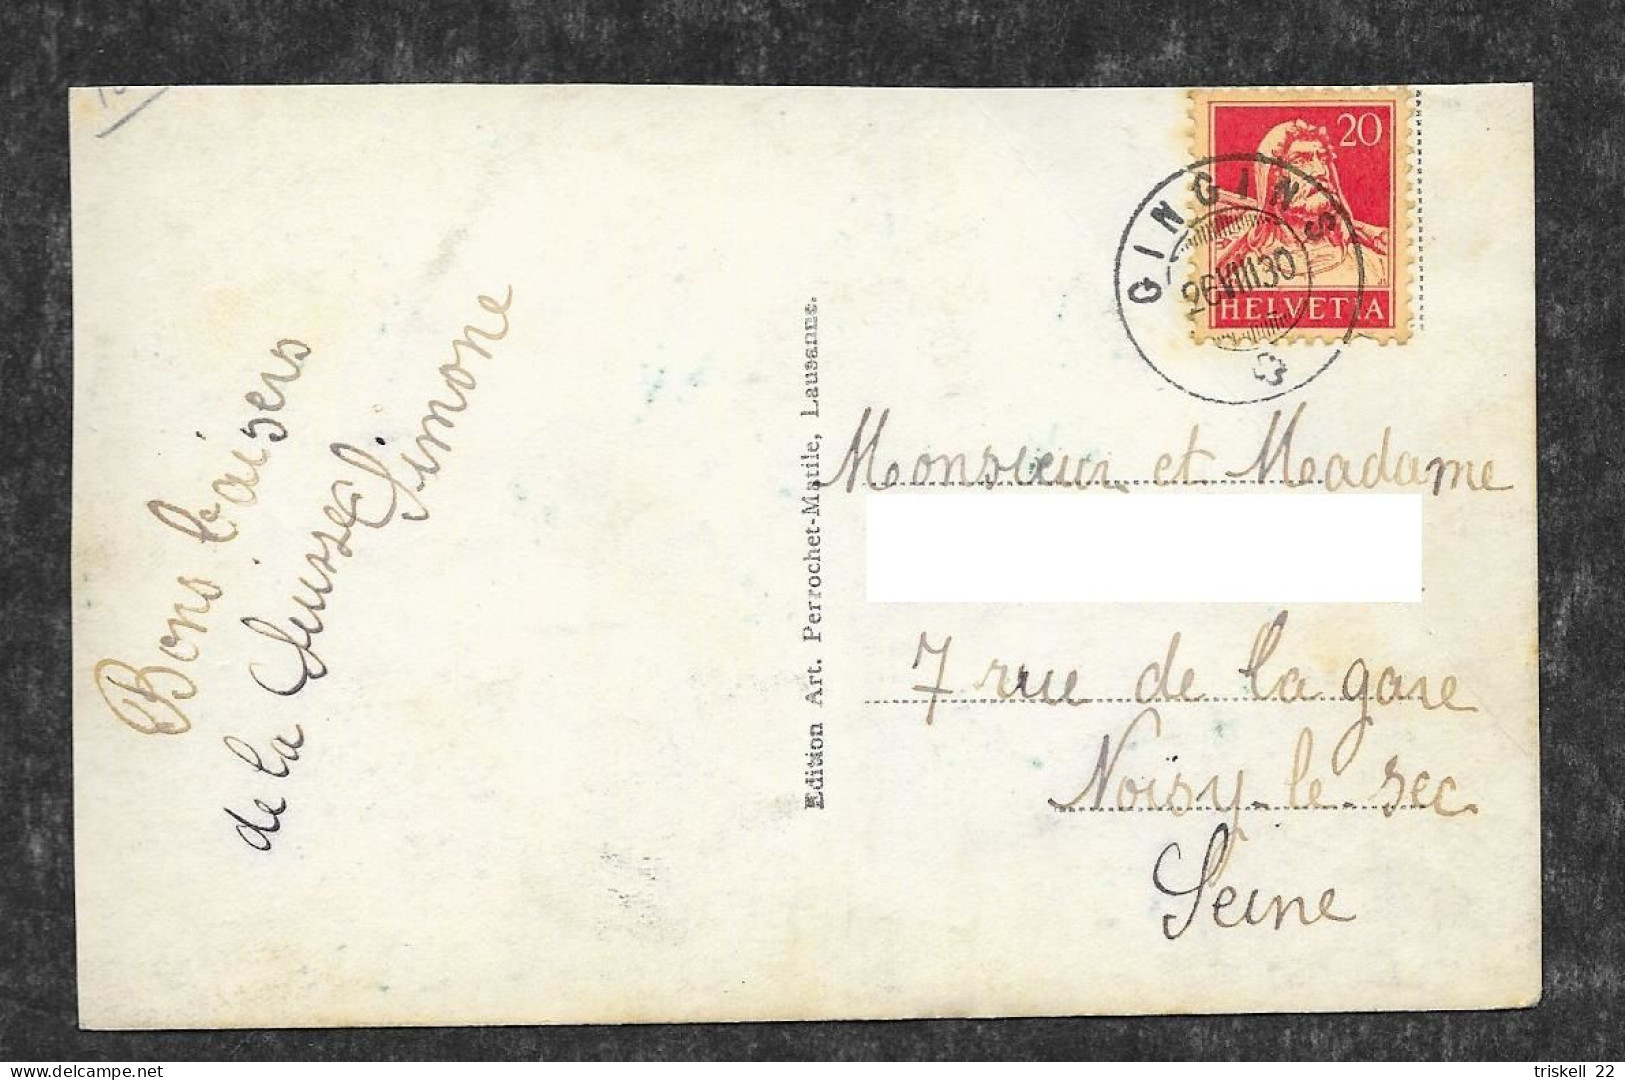 Bons baisers
de la Suisse
Simone
Edition Art. Perrochet-Matile, Lausanne.
20
HELVETIA
GINGINS
26 VIII 30
Monsieur et Madame
7 rue de la gare
Noisy-le-sec
Seine
triskell_22